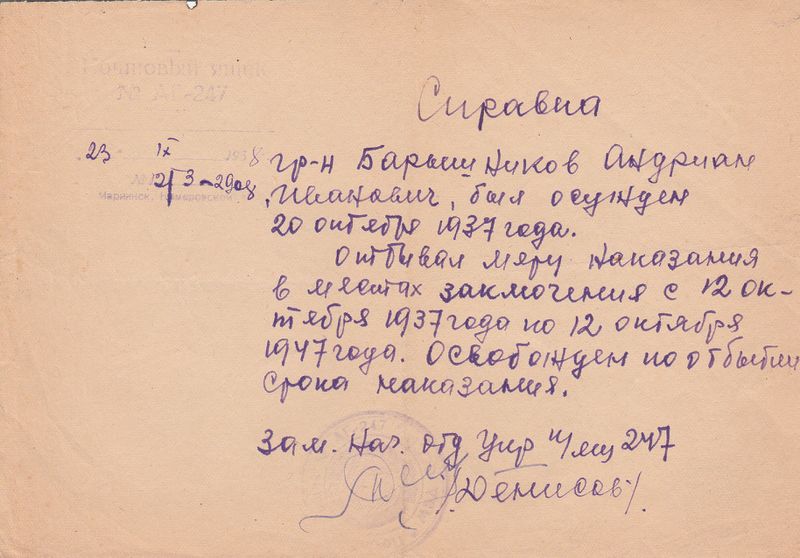 Почтовый ящик
№ АГ-247
Справка
23 IX 1958
№ 12/3-2908
Мариинск, Кемеровской
гр-н Барышников Андриан
Иванович, был осужден
20 октября 1937 года.
Отбывал меру наказания
в местах заключения с 12 ок-
тября 1937 года по 12 октября
1947 года. Освобожден по отбытии
срока наказания.
Зам. Нач. отд Упр п/ящ 247
/Денисов/